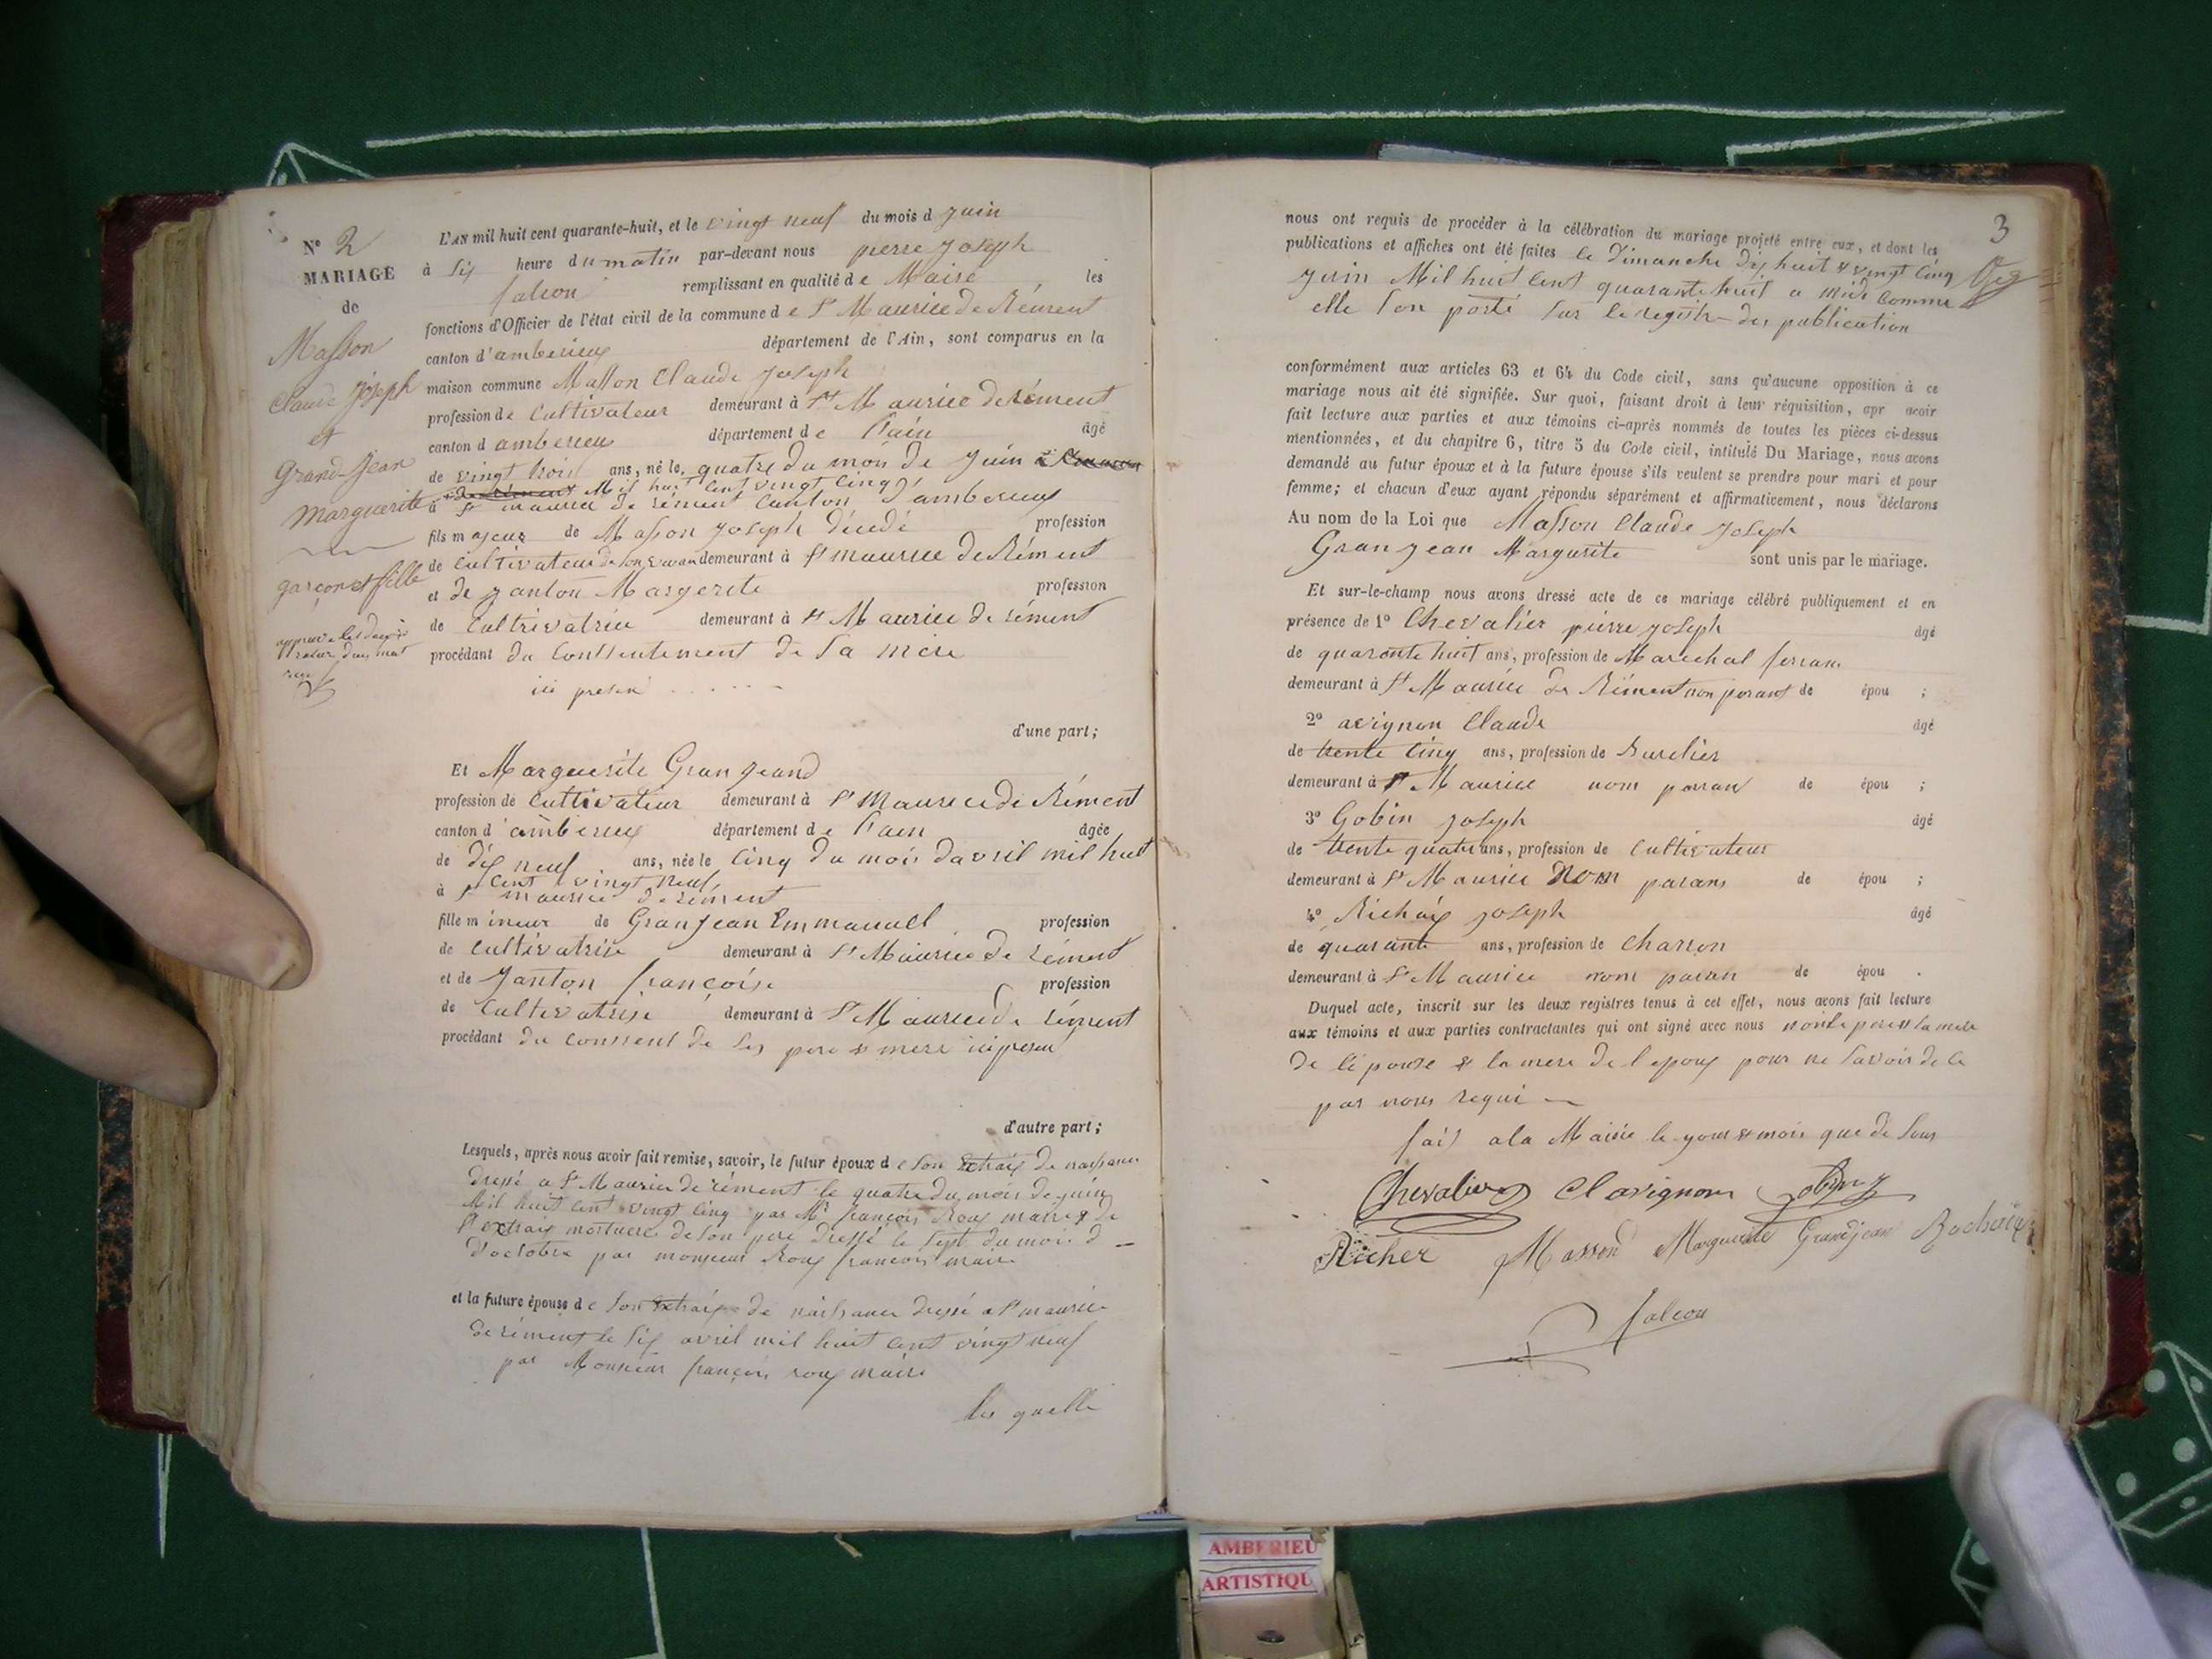 N° 2
MARIAGE
de
Masson
Claude Joseph
et
Grand-Jean
Marguerite
garçon et fille
L'AN mil huit cent quarante-huit, et le vingt neuf du mois d juin
à six heure du matin par-devant nous pierre Joseph
falcon remplissant en qualité de Maire les
fonctions d'Officier de l'état civil de la commune de St Maurice de Rément
canton d'amberieux département de l'Ain, sont comparus en la
maison commune Masson Claude Joseph
profession de Cultivateur demeurant à St Maurice de rément
canton d amberieux département de l'ain âgé
de vingt trois ans, né le quatre du mois de juin
Mil huit cent vingt cinq
à St maurice de rément canton d'amberieux
fils majeur de Masson Joseph décédé profession
de Cultivateur de son vivan demeurant à St maurice de Rément
et de janton Margerite profession
de Cultrivatrice demeurant à St Maurice de rément
procédant du Consentement de sa mère
ici présen
d'une part;
Et Marguerite Grangeand
profession de Cultivateur demeurant à St Maurice de Rément
canton d'amberieux département de l'ain âgée
de dix neuf ans, née le cinq du mois davril mil huit
cent vingt neuf
à St maurice de rément
fille mineur de Granjean Emmanuel profession
de Cultivatrise demeurant à St Maurice de rément
et de Janton françoise profession
de Cultivatrise demeurant à St Maurice de rément
procédant du Consent de ses pere & mere ici presen
d'autre part;
Lesquels, après nous avoir fait remise, savoir, le futur époux de son Extraix de naissance
dressé a St Maurice de rément le quatre du mois de juin
Mil huit cent vingt cinq par Mr françois Roux maire & de
l'extraix mortuere de son pere dressé le sept du mois d
d'octobre par monsieur Roux françois maire
et la future épouse de son Extraix de naissance dressé a St maurice
de rément le six avril mil huit cent vingt neuf
par Monsieur françois roux maire
les quelle
3
nous ont requis de procéder à la célébration du mariage projeté entre eux, et dont les
publications et affiches ont été faites le Dimanche dix huit & vingt cinq
juin Mil huit cent quarante huit a midi Comme
elle son porté sur le registre des publication
conformément aux articles 63 et 64 du Code civil, sans qu'aucune opposition à ce
mariage nous ait été signifiée. Sur quoi, faisant droit à leur réquisition, apr avoir
fait lecture aux parties et aux témoins ci-après nommés de toutes les pièces ci-dessus
mentionnées, et du chapitre 6, titre 5 du Code civil, intitulé Du Mariage, nous avons
demandé au futur époux et à la future épouse s'ils veulent se prendre pour mari et pour
femme; et chacun d'eux ayant répondu séparément et affirmativement, nous déclarons
Au nom de la Loi que Masson Claude Joseph
Granjean Margurite sont unis par le mariage.
Et sur-le-champ nous avons dressé acte de ce mariage célébré publiquement et en
présence de 1° Chevalier pierre joseph âgé
de quarante huit ans, profession de Marechal ferran
demeurant à St Maurice de Rément non parant de épou ;
2° avignon Claude âgé
de trente cinq ans, profession de Burelier
demeurant à St Maurice nom parran de épou ;
3° Gobin joseph âgé
de trente quatre ans, profession de Cultivateur
demeurant à St Maurice nom parans de épou ;
4° Richaix joseph âgé
de quarante ans, profession de Charron
demeurant à St Maurice nom paran de épou .
Duquel acte, inscrit sur les deux registres tenus à cet effet, nous avons fait lecture
aux témoins et aux parties contractantes qui ont signé avec nous non le pere & la mere
De lépouse & la mere de l epoux pour ne savoir de ce
par nous requi
fait a la Mairie le jour & mois que de sous
Chevalier Clavignon Gobin J
Richer Masson Marguerite Grandjean
falcon
AMBERIEU
ARTISTIQU